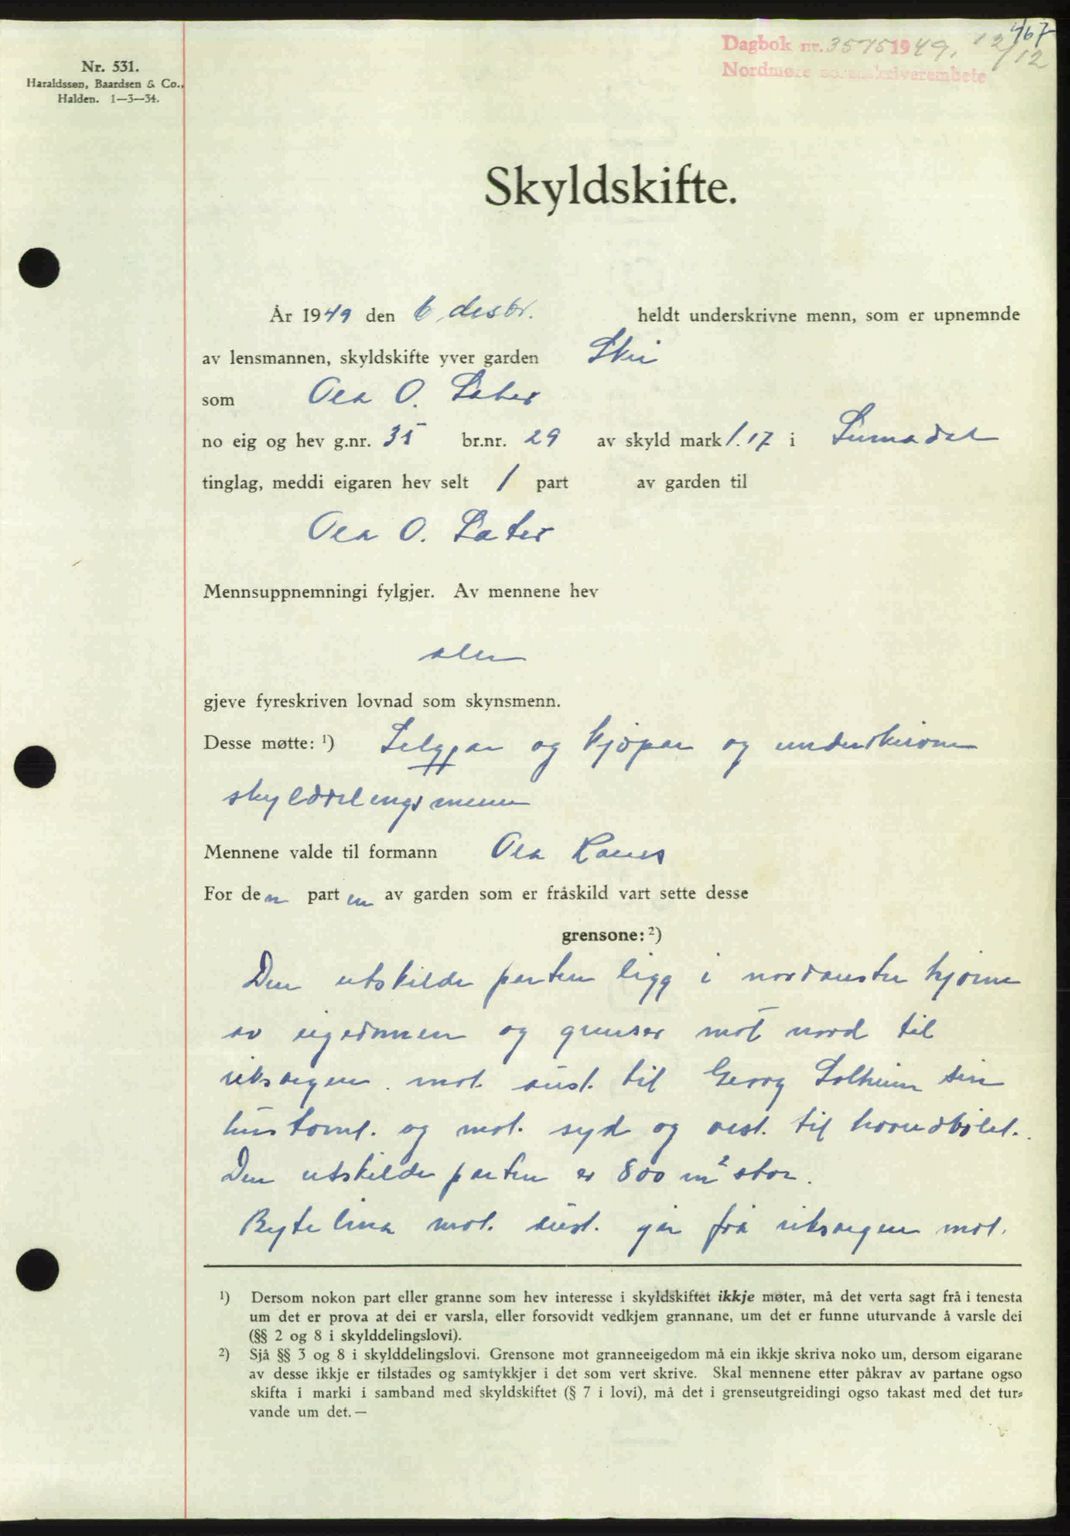 467
Dagbok nr. 3575 1949. 12/12
Nordmøre sorenskriverembete
Nr. 531.
Haraldssøn, Baardsen & Co.,
Halden. 1—3—34.
Skyldskifte.
År 1949 den 6 desbr. heldt underskrivne menn, som er upnemnde
av lensmannen, skyldskifte yver garden Skei
som Ola O. Sæter
no eig og hev g.nr. 35 br.nr. 29 av skyld mark 1.17 i Surnadal
tinglag, meddi eigaren hev selt 1 part av garden til
Ola O. Sæter
Mennsuppnemningi fylgjer. Av mennene hev
alle
gjeve fyreskriven lovnad som skynsmenn.
Desse møtte: ¹) Seljar og kjøpar og underskrivne
skylddelingsmenn
Mennene valde til formann Ola Ranes
For den parten av garden som er fråskild vart sette desse
grensone: ²)
Den utskilde parten ligg i nordaustre hjørne
av eigedomen og grenser mot nord til
riksvegen. mot aust. til Georg Solheim sin
hustomt. og mot. syd og vest. til hovedbølet.
Den utskilde parten er 800 m² stor.
Bytelina mot. aust. går frå riksvegen mot.
¹) Dersom nokon part eller granne som hev interesse i skyldskiftet ikkje møter, må det verta sagt frå i tenesta
um det er prova at dei er varsla, eller forsovidt vedkjem grannane, um det er funne uturvande å varsle dei
(§§ 2 og 8 i skylddelingslovi).
²) Sjå §§ 3 og 8 i skylddelingslovi. Grensone mot granneeigedom må ein ikkje skriva noko um, dersom eigarane
av desse ikkje er tilstades og samtykkjer i det som vert skrive. Skal mennene etter påkrav av partane ogso
skifta i marki i samband med skyldskiftet (§ 7 i lovi), må det i grenseutgreidingi ogso takast med det tur-
vande um det. —